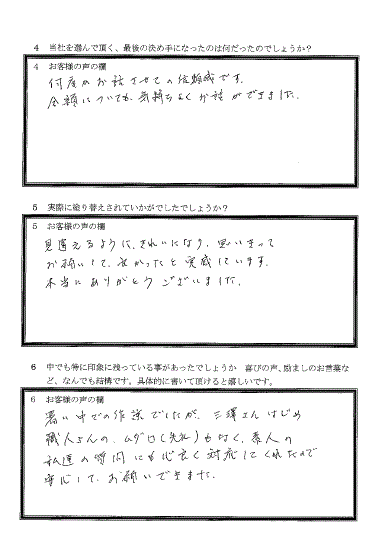 4 当社を選んで頂く、最後の決め手になったのは何だったのでしょうか?
4 お客様の声の欄
何度かお話させての信頼感です。
金額についても、気持ちよくお話ができました。
5 実際に塗り替えされていかがでしたでしょうか?
5 お客様の声の欄
見違えるように、きれいになり、思いきって
お願いして、良かったと実感しています。
本当にありがとうございました。
6 中でも特に印象に残っている事があったでしょうか 喜びの声、励ましのお言葉な
ど、なんでも結構です。具体的に書いて頂けると嬉しいです。
6 お客様の声の欄
暑い中での作業でしたが、三澤さんはじめ
職人さんの、ムダ口(失礼)もなく、素人の
私達の質問にも心良く対応してくれたので
安心して、お願いできました。